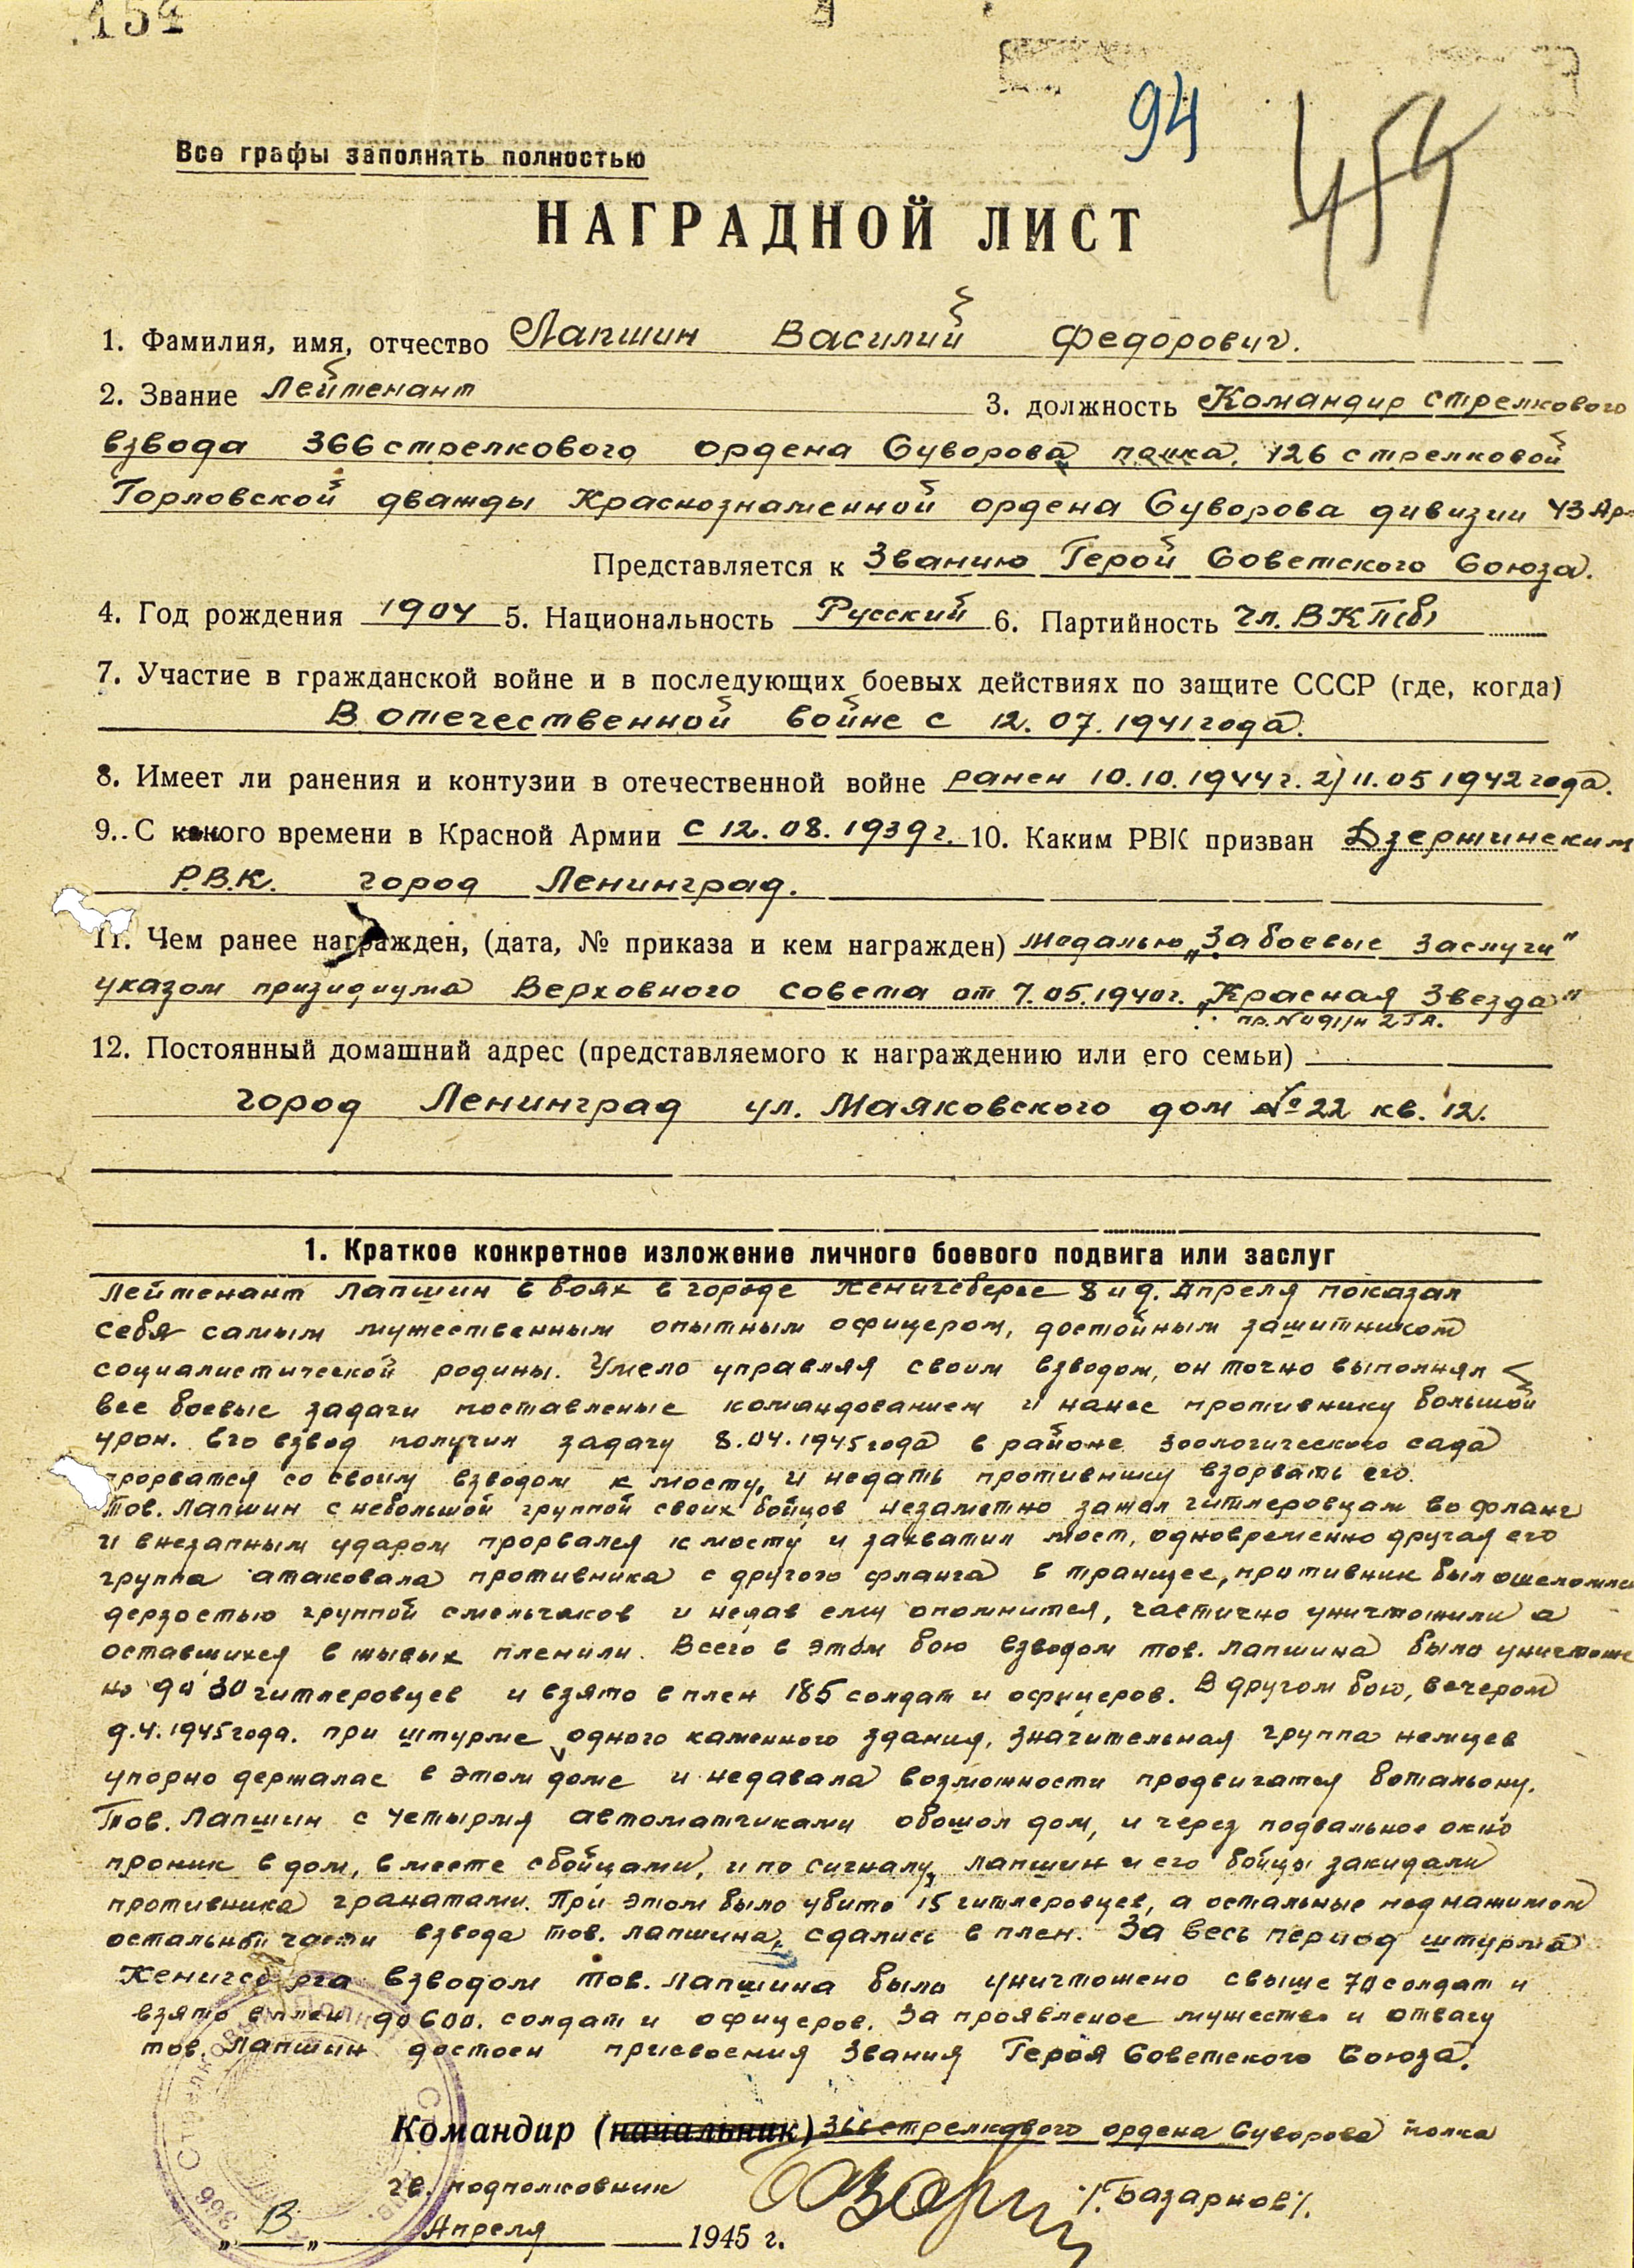 154
94
454
Все графы заполнять полностью
НАГРАДНОЙ ЛИСТ
1. Фамилия, имя, отчество Лапшин Василий Федорович.
2. Звание Лейтенант 3. должность Командир стрелкового
взвода 366 стрелкового ордена Суворова полка, 126 стрелковой
Горловской дважды Краснознаменной ордена Суворова дивизии 43 Ар-
Представляется к Званию Герой Советского Союза.
4. Год рождения 1904 5. Национальность Русский 6. Партийность Чл. ВКП(б)
7. Участие в гражданской войне и в последующих боевых действиях по защите СССР (где, когда)
В отечественной войне с 12.07.1941 года.
8. Имеет ли ранения и контузии в отечественной войне ранен 10.10.1944 г. 2) 11.05 1942 года.
9. С какого времени в Красной Армии с 12.08.1939 г. 10. Каким РВК призван Дзержинским
Р.В.К. город Ленинград.
11. Чем ранее награжден, (дата, № приказа и кем награжден) медалью „За боевые заслуги"
указом призидиума Верховного совета от 7.05.1940 г. „Красная Звезда"
пр. № 091/н 2 ГА.
12. Постоянный домашний адрес (представляемого к награждению или его семьи)
город Ленинград ул. Маяковского дом № 22 кв. 12.
1. Краткое конкретное изложение личного боевого подвига или заслуг
Лейтенант Лапшин в боях в городе Кенигсберге 8 и 9. Апреля показал
себя самым мужественным опытным офицером, достойным защитником
социалистической родины. Умело управляя своим взводом, он точно выполнял
все боевые задачи поставленые командованием и нанес противнику большой
урон. Его взвод получил задачу 8.04.1945 года в районе зоологического сада
прорватся со своим взводом к мосту, и недать противнику взорвать его.
Тов. Лапшин с небольшой группой своих бойцов незаметно зашел гитлеровцам во фланг
и внезапным ударом прорвался к мосту и захватил мост, одновременно другая его
группа атаковала противника с другого фланга в траншее, противник был ошеломлен
дерзостью группой смельчаков и недав ему опомнится, частично уничтожили а
оставшихся в живых пленили. Всего в этом бою взводом тов. Лапшина было уничтоже
но до 30 гитлеровцев и взято в плен 185 солдат и офицеров. В другом бою, вечером
9.4.1945 года. при штурме одного каменного здания, значительная группа немцев
упорно держалас в этом доме и недавала возможности продвигатся ботальону.
Тов. Лапшин с четырмя автоматчиками обошол дом, и через подвальное окно
проник в дом, вместе с бойцами, и по сигналу, Лапшин и его бойцы закидали
противника гранатами. При этом было убито 15 гитлеровцев, а остальные под нажимом
остальной части взвода тов. Лапшина, сдались в плен. За весь период штурма
Кенигсберга взводом тов. Лапшина было уничтожено свыше 70 солдат и
взято в плен до 600. солдат и офицеров. За проявленое мужество и отвагу
тов. Лапшин достоен присвоения Звания Героя Советского Союза.
Командир (начальник) 366 стрелкового ордена Суворова полка
гв. подполковник /. Базарнов /.
„ 13 „ Апреля 1945 г.